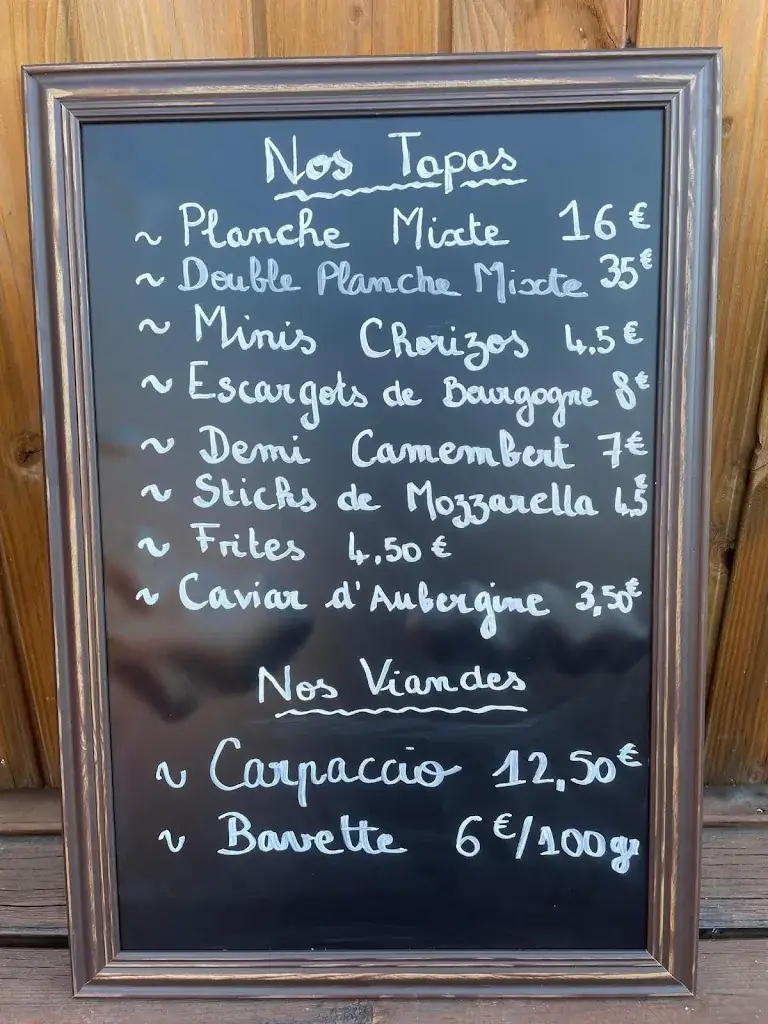 Nos Tapas
~ Planche Mixte 16€
~ Double Planche Mixte 35€
~ Minis Chorizos 4.5€
~ Escargots de Bourgogne 8€
~ Demi Camembert 7€
~ Sticks de Mozzarella 4,5€
~ Frites 4,50€
~ Caviar d'Aubergine 3,50€
Nos Viandes
~ Carpaccio 12,50€
~ Bavette 6€/100gr